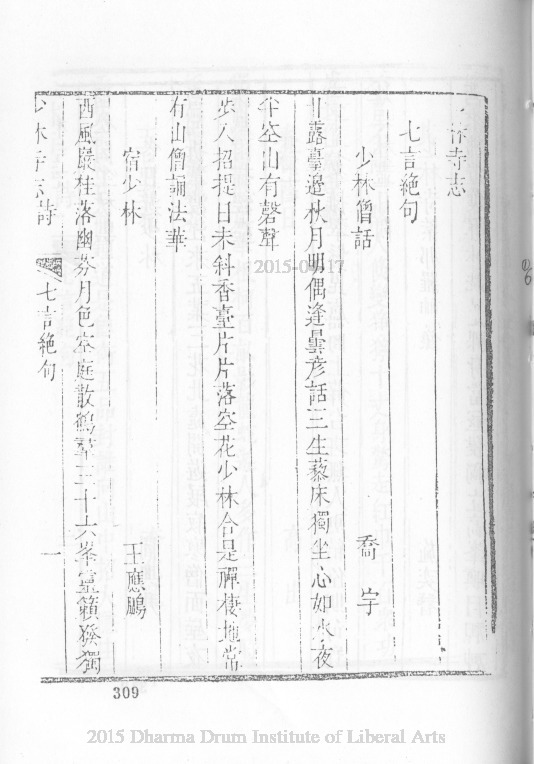 林寺志
七言絕句
少林僧話　喬宇
甘露臺邊秋月明偶逢曇彥話三生藜床獨坐心如水夜
半空山有磬聲
步入招提日未斜香臺片片落空花少林合是禪棲地常
有山僧誦法華
宿少林　王應鵬
西風巖桂落幽芬月色空庭散鶴羣三十六峯靈籟發獨
少林寺志詩　七言絕句　一
309
2015-09-17
2015 Dharma Drum Institute of Liberal Arts